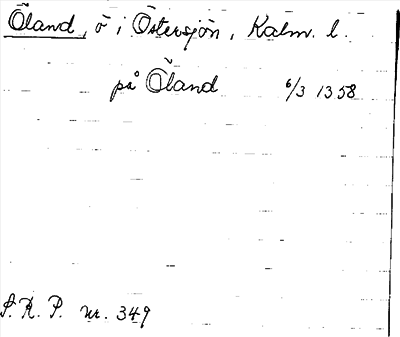 Öland, ö i Östersjön, Kalm. l.
på Öland 6/3 1358
S.R.P. nr. 349